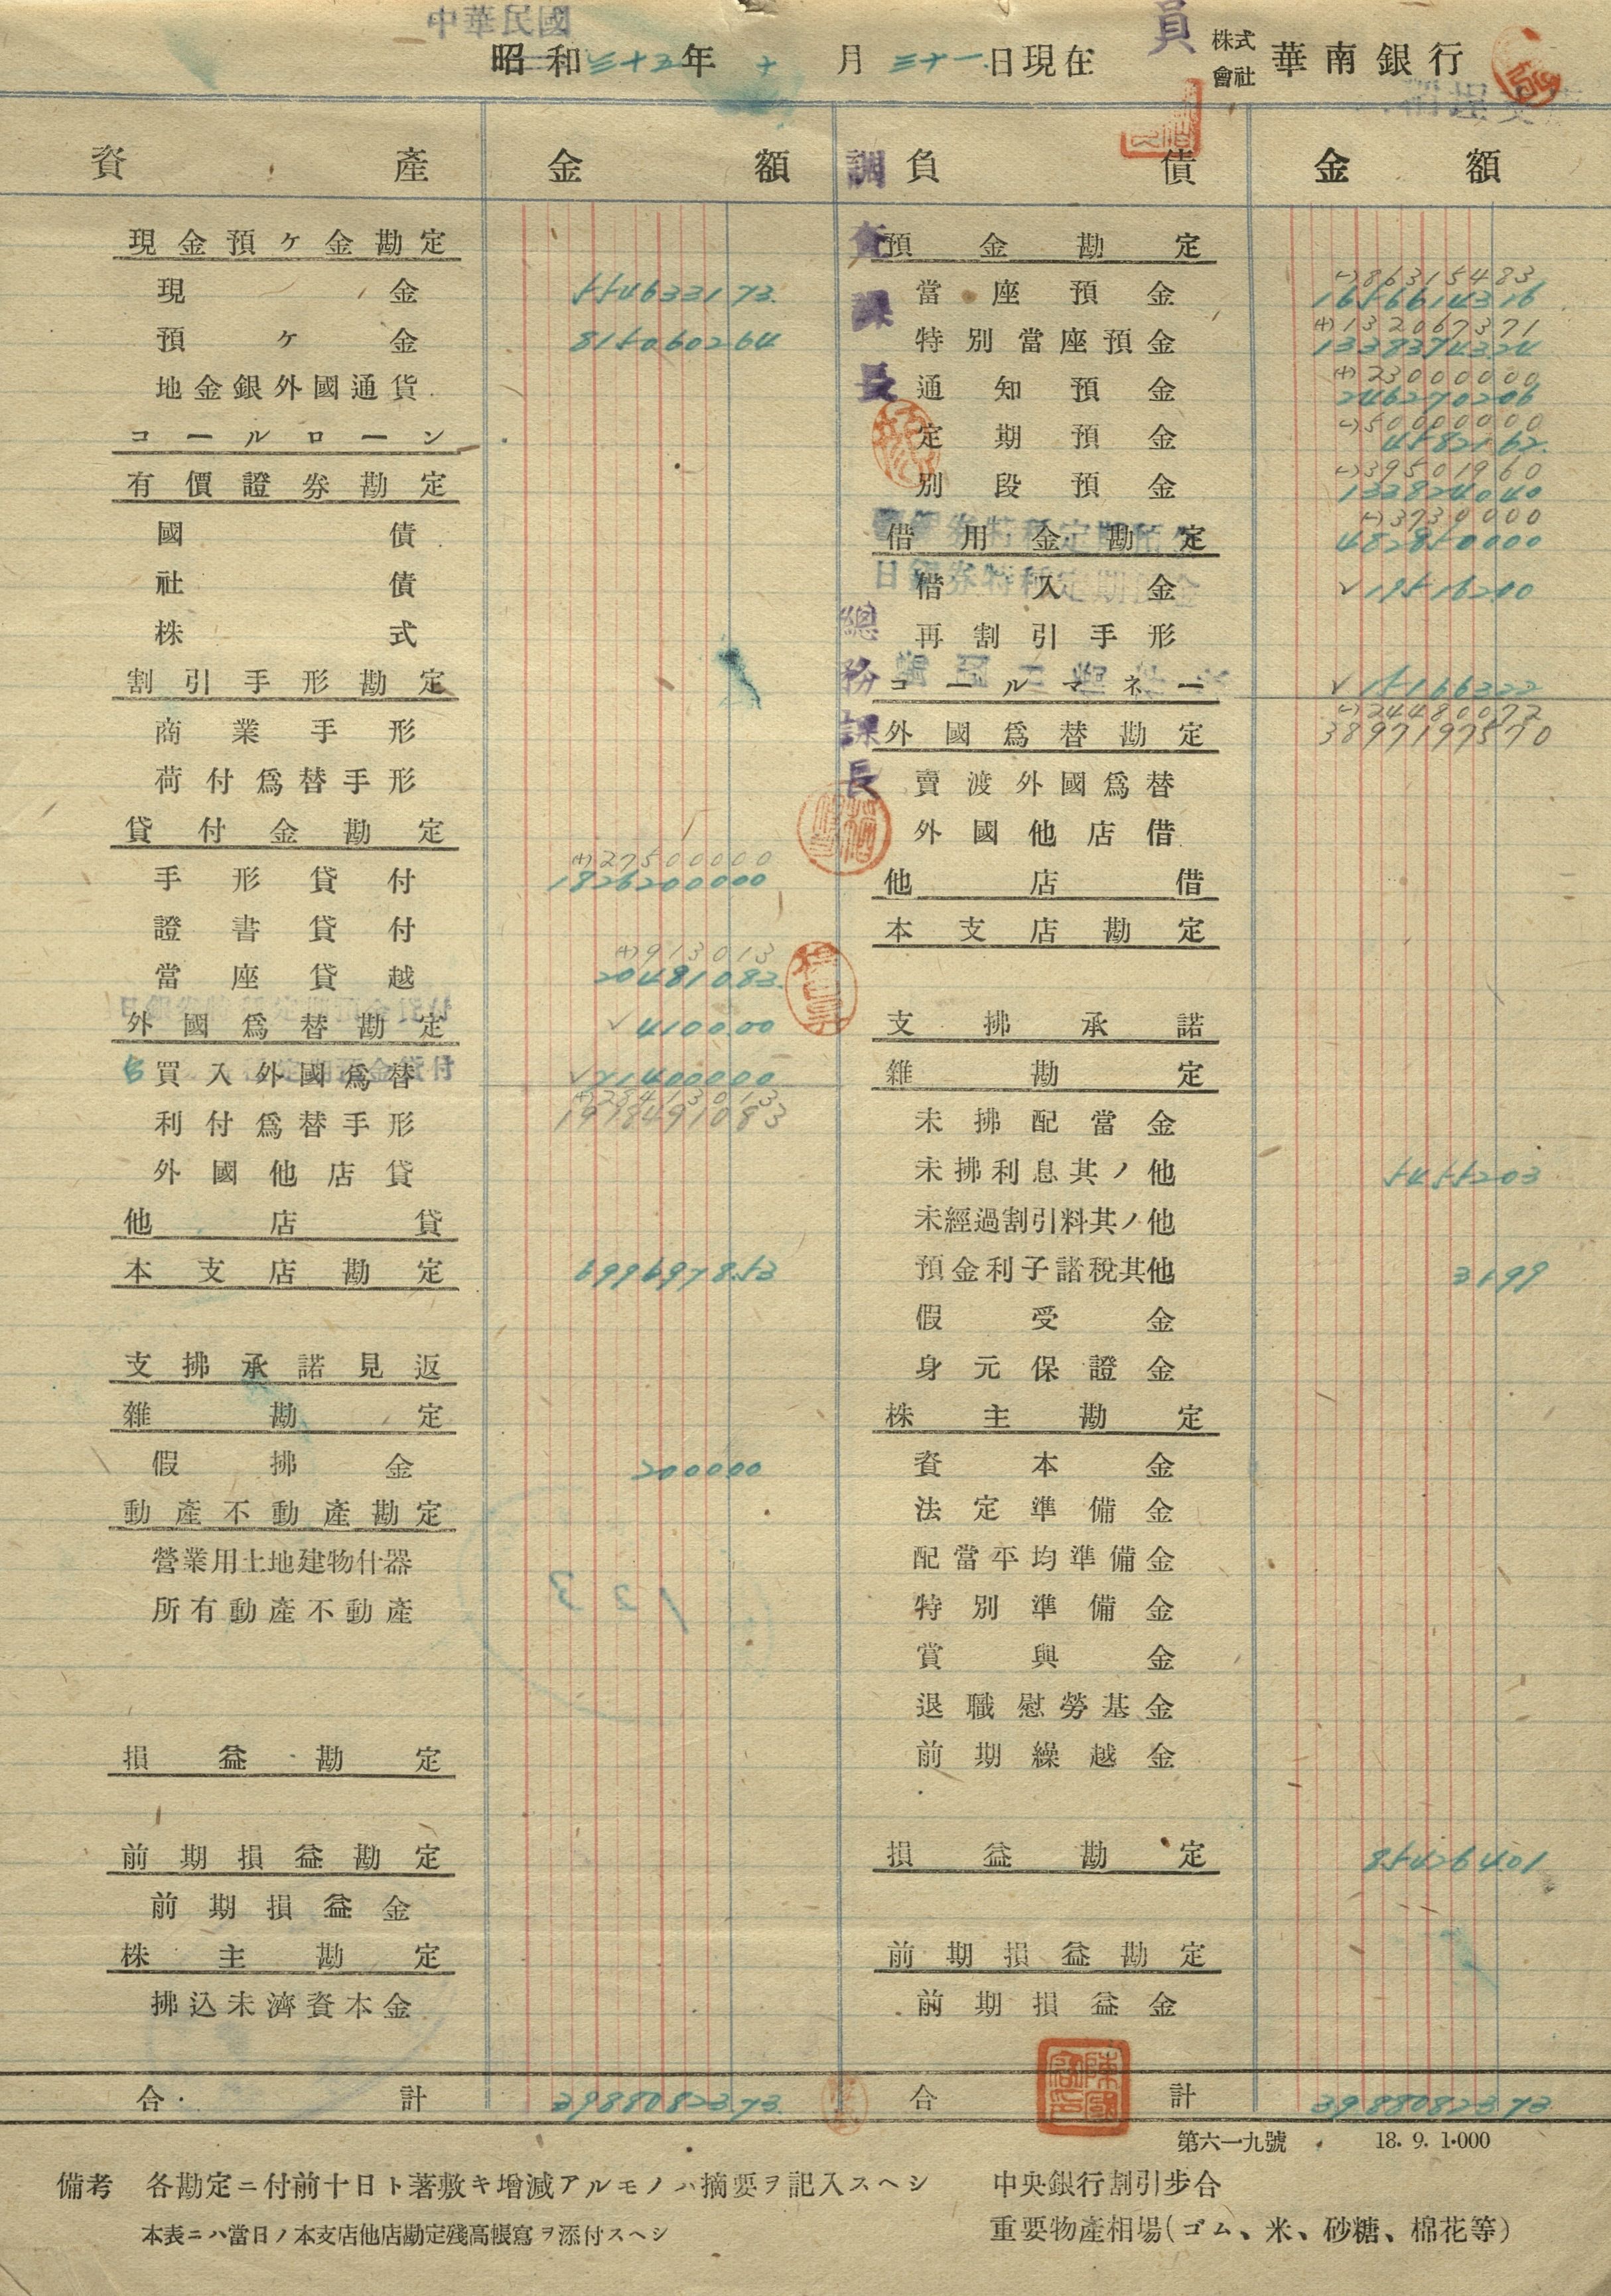 中華民國
昭和三十五年 十 月 三十一 日現在 員 株式會社 華南銀行
資產 金額 負債 金額
調查課長
總務課長
現金預ケ金勘定
現金 554633173
預ケ金 815060264
地金銀外國通貨
コールローン
有價證券勘定
國債
社債
株式
割引手形勘定
商業手形
荷付爲替手形
貸付金勘定
(+)27500000
手形貸付 1826200000
證書貸付
(+)913013
當座貸越 20481083
外國爲替勘定 ✓410000
買入外國爲替 ✓
利付爲替手形 1978491083
外國他店貸
他店貸
本支店勘定 699697853
支拂承諾見返
雜勘定
假拂金 200000
動產不動產勘定
營業用土地建物什器
所有動產不動產
損益勘定
前期損益勘定
前期損益金
株主勘定
拂込未濟資本金
合計 3988082373
預金勘定
(-)86315483
當座預金 1656614316
(+)132067371
特別當座預金 1338374324
(+)23000000
通知預金 246270206
(-)50000000
定期預金 4582162
(-)39501960
別段預金 133824040
(-)3730000
借用金勘定 482850000
日銀券特種定期預金
借入金 ✓19516200
再割引手形
コールマネー ✓15166322
(-)24480072
外國爲替勘定 3897197570
賣渡外國爲替
外國他店借
他店借
本支店勘定
支拂承諾
雜勘定
未拂配當金
未拂利息其ノ他 5455203
未經過割引料其ノ他
預金利子諸稅其他 3199
假受金
身元保證金
株主勘定
資本金
法定準備金
配當平均準備金
特別準備金
賞與金
退職慰勞基金
前期繰越金
損益勘定 85426401
前期損益勘定
前期損益金
合計 3988082373
第六一九號 18. 9. 1·000
備考 各勘定ニ付前十日ト著敷キ增減アルモノハ摘要ヲ記入スヘシ
本表ニハ當日ノ本支店他店勘定殘高帳寫ヲ添付スヘシ
中央銀行割引步合
重要物產相場(ゴム、米、砂糖、棉花等)